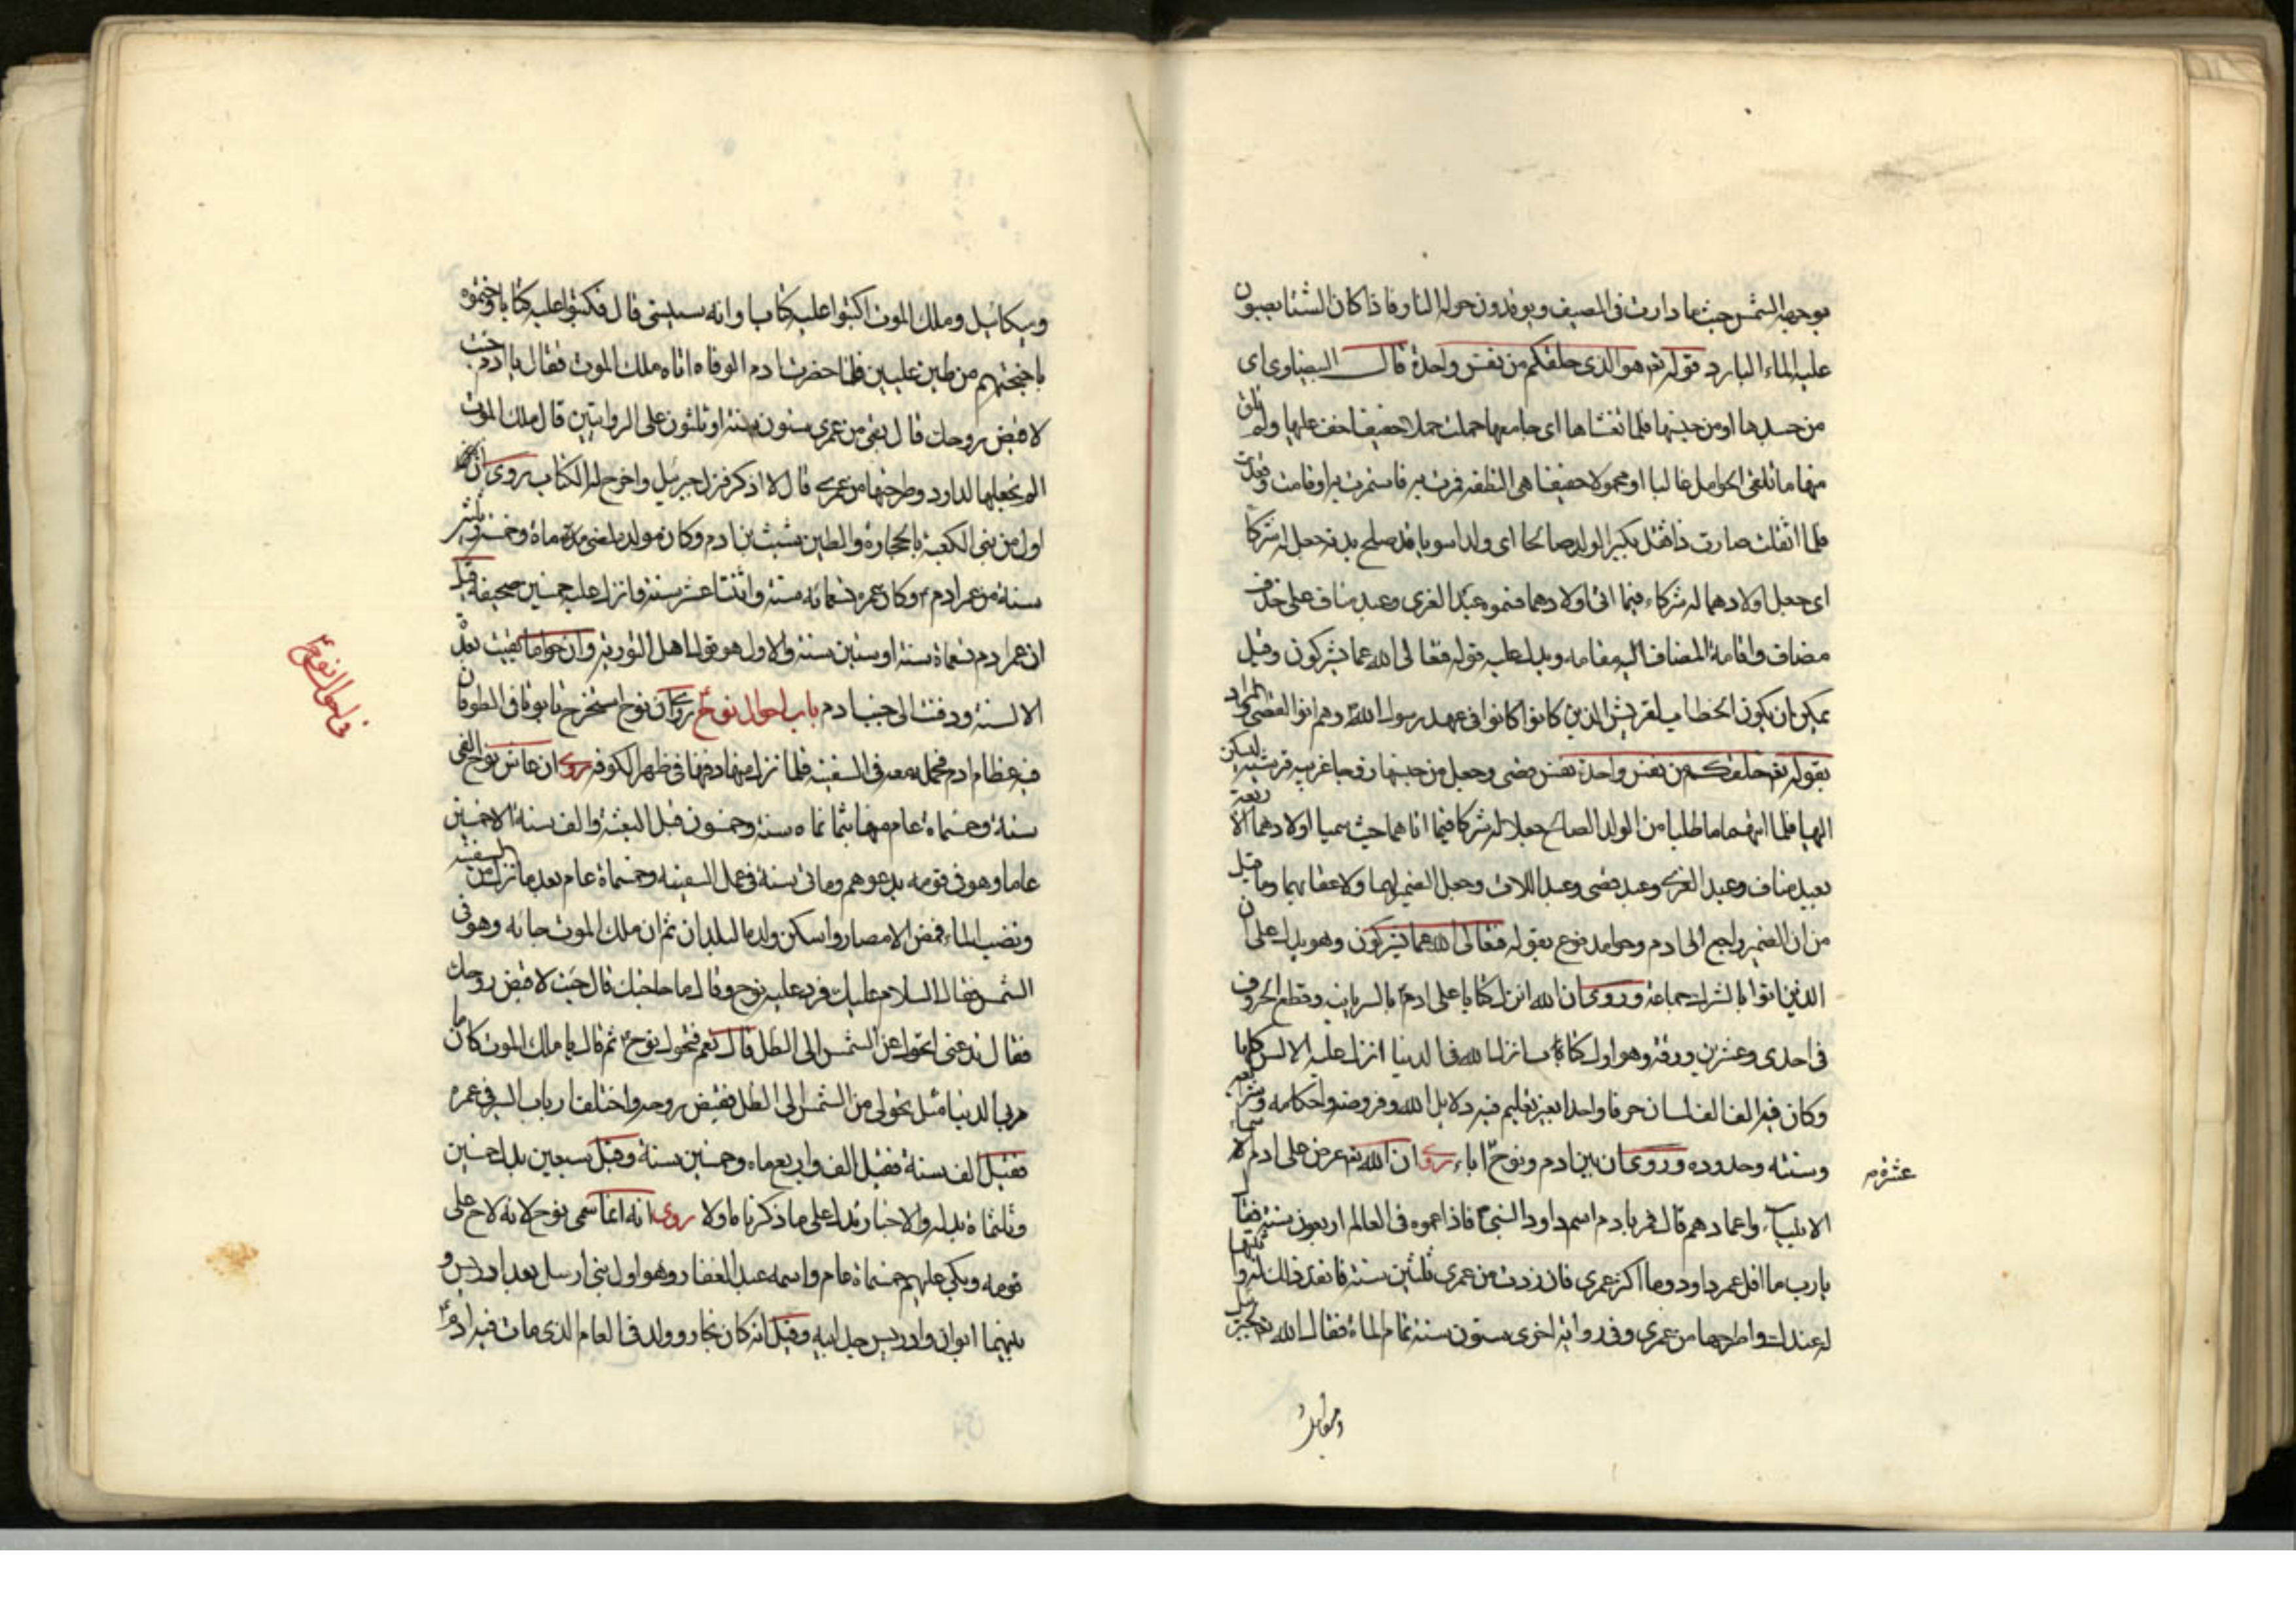 بوجهه الشمس حيث ما دارت فى الصيف ويوقدون حوله النار فاذا كان الشتا يصبون
عليه الماء البارد قوله تع هو الذى خلقكم من نفس واحدة قال البيضاوى اى
من جسدها او من جنسها فلما تغشاها اى جامعها حملت حملا خفيفا خف عليها ولم تلق
منها ما تلقى الحوامل غالبا او محمولا خفيفا هى النطفة فمرت به فاستمرت به او قامت وقعدت
فلما اثقلت صارت ذا ثقل بكبر الولد صالحا اى ولدا سويا قد صلح بدنه جعلا له شركا
اى جعل اولادهما له شركاء فيما اتى اولادهما فسموه عبد العزى وعبد مناف على حذف
مضاف واقامة المضاف اليه مقامه ويدل عليه قوله فتعالى الله عما يشركون وقيل
يمكن ان يكون الخطاب لقريش الذين كانوا كانوا فى عهد رسول الله وهم ال قصى والمراد
بقوله تع خلقكم من نفس واحدة نفس قصى وجعل من جنسها زوجا عربية قرشية ليسكن
اليها فلما اتيهما ما طلبا من الولد الصالح جعلا له شركا فيما اتاهما حيث سميا اولادهما الاربعة
بعبد مناف وعبد العزى وعبد قصى وعبد اللات وجعل الضمير لهما ولاعقابهما وما قيل
من ان الضمير راجع الى ادم وحوا مدفوع بقوله فتعالى الله عما يشركون وهو يدل على ان
الذين اتوا بالشرك جماعة وروى ان الله انزل كتابا على ادم بالسريانية وقطع الحروف
فى احدى وعشرين ورقة وهو اول كتاب انزله الله فى الدنيا انزل عليه الالسن كلها
وكان فيه الف الف لسان حرفا واحدا بغير تعليم فيه دلايل الله وفروضه واحكامه وشرايعه
وسننه وحدوده وروى ان بين ادم ونوح اباء روى ان الله تع عرض على ادم اسماء
عشرة م
الانبياء واعمارهم قال فمر بادم اسم داود النبى فاذا عمره فى العالم اربعون سنة فقال
يارب ما اقل عمر داود وما اكثر عمرى فان زدت من عمرى ثلثين سنة فانفذ ذلك له واثبتها
له عندك واطرحها من عمرى وفى رواية اخرى ستون سنة تمام المائة فقال الله تع لجبرئيل
وميكائيل
وميكائيل وملك الموت اكتبوا عليه كتابا وانه سينسى قال فكتبوا عليه كتابا وختموه
باجنحتهم من طين عليين فلما حضرت ادم الوفاه اتاه ملك الموت فقال يا ادم جئت
لاقبض روحك قال بقى من عمرى ستون سنة او ثلثون على الروايتين قال ملك الموت
الم تجعلها لداود وطرحتها من عمرك قال لا اذكر فنزل جبرئيل واخرج له الكتاب روى ان
اول من بنى الكعبة بالحجارة والطين شيث بن ادم وكان مولده لمضى مدة ماة وخمسة وثلثين
سنة من عمر ادم وكان عمره تسعمائه سنة واثنتا عشر سنة فانزل عليه خمسين صحيفة قيل
ان عمر ادم تسعماة سنة او ستين سنة والاول هو قول اهل التورية وان حوا ما بقيت بعده
الا سنة ودفنت الى جنب ادم باب احوال نوح روى ان نوح استخرج تابوتا فى الطوفان
فى احوال نوح
فيه عظام ادم فحمله معه فى السفينة فلما نزل منها دفنها فى ظهر الكوفة روى ان عاش نوح الفى
سنة وخمسماة عام منها ثمانماه سنة وخمسون قبل البعثة والف سنة الا خمسين
عاما وهو فى قومه يدعوهم ومائتى سنة فى عمل السفينه وخمسماة عام بعد ما نزل من السفينة
ونضب الماء فمصر الامصار واسكن ولده البلدان ثم ان ملك الموت جائه وهو فى
الشمس فقال السلام عليك فرد عليه نوح وقال ما حاجتك قال جئت لاقبض روحك
فقال تدعنى اتحول عن الشمس الى الظل قال نعم فتحول نوح ثم قال يا ملك الموت كان ما
مر بى الدنيا مثل تحولى من الشمس الى الظل فقبض روحه واختلف ارباب السير فى عمره
فقيل الف سنة فقيل الف واربعماه وخمسين سنة وقيل سبعين بدل خمسين
وثلثماة بدله والاخبار تدل على ما ذكرناه اولا روى انه انما سمى نوح لانه ناح على
قومه وبكى عليهم خمسماة عام واسمه عبد الغفار وهو اول نبى ارسل بعد ادريس و
بينهما ابوان وادريس جد ابيه وقيل انه كان نجار وولد فى العام الذى مات فيه ادم